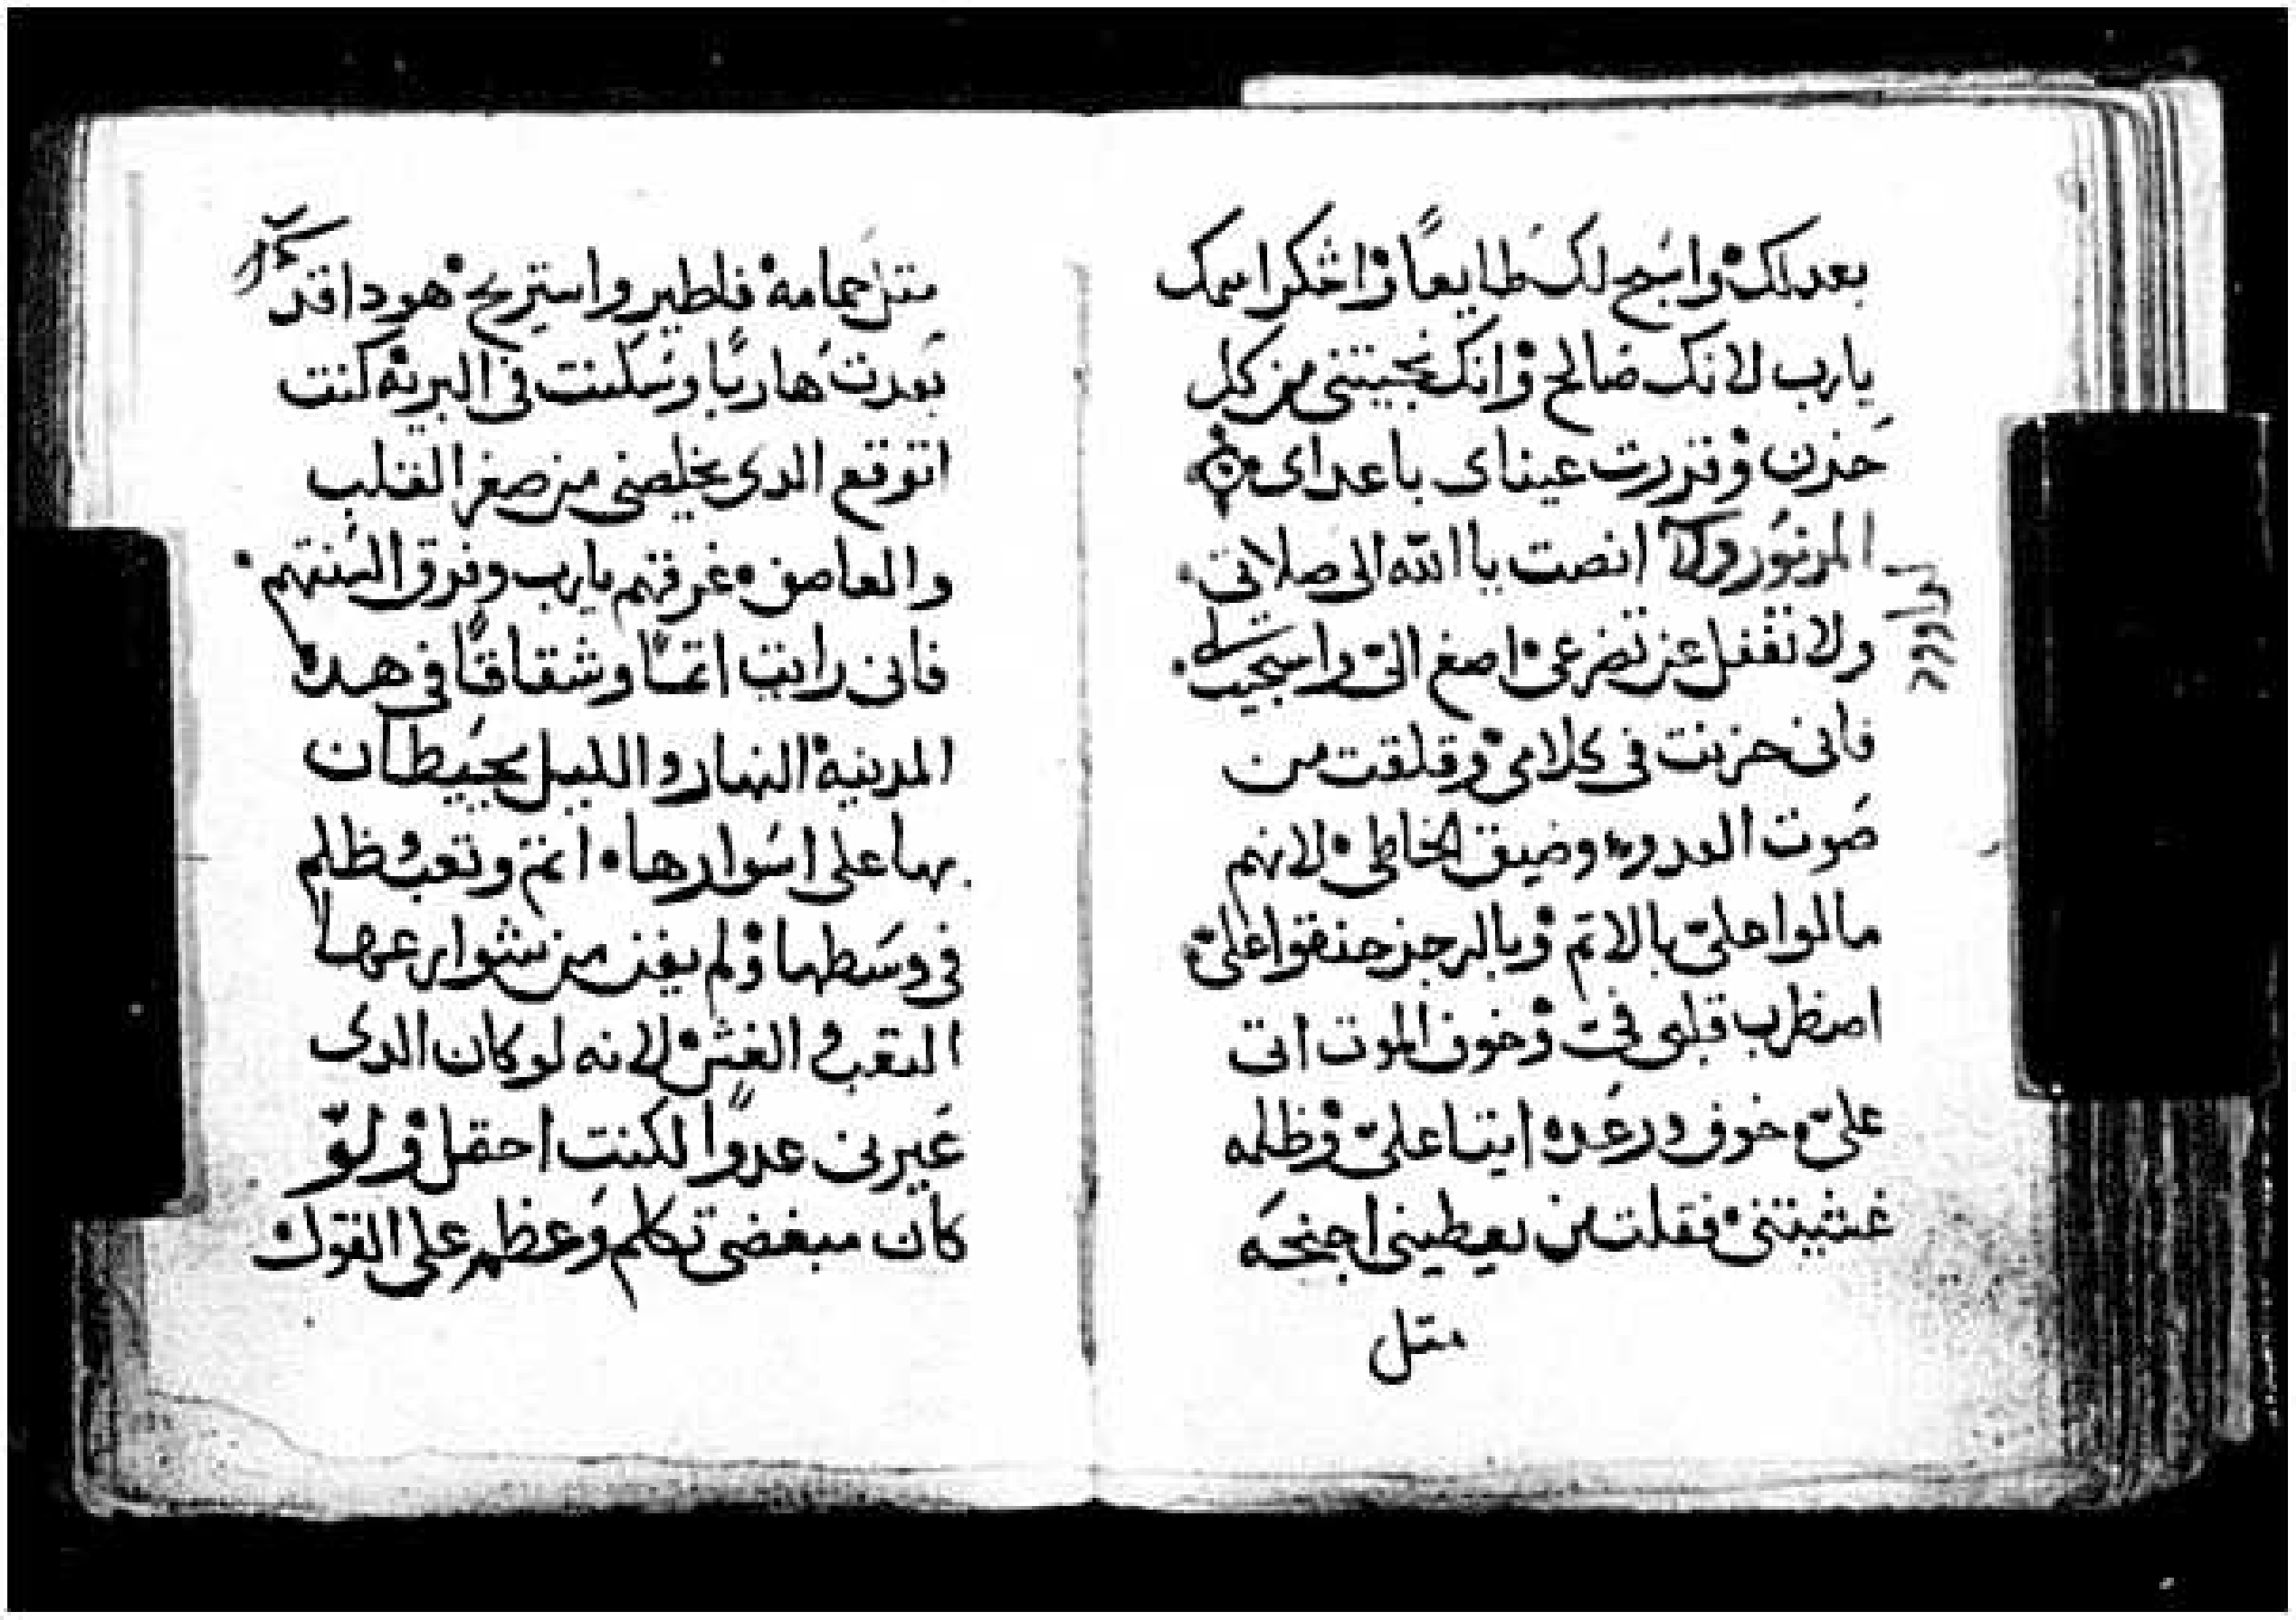 بعدلك واسبح لك طايعاً واشكر اسمك
يارب لانك صالح وانك نجيتني من كل
حزن ونزرت عيناى باعداى
المزمور انصت يا الله الى صلاتى
ولا تغفل عن تضرعى اصغ الىّ واستجيب لى
فانى حزنت فى كلامى وقلقت من
صوت العدو وضيق الخاطى لانهم
مالوا علىّ بالاتم وبالرجز حنقوا علىّ
اضطرب قلبى فىّ وخوف الموت اتى
علىّ خوف ورعده اتيا علىّ وظلمه
غشيتنى فقلت من يعطينى اجنحه
متل
متل حمامه فاطير واستريح هودا قد
بعدت هاربًا وسكنت فى البريه كنت
اتوقع الدى يخلصنى من صغر القلب
والعاصف غرقهم يارب وفرق السنتهم
فانى رايت اتمًا وشقاقًا فى هده
المدينه النهار والليل يحيطان
بها على اسوارها اتم وتعب وظلم
فى وسطها ولم يفن من شوارعها
التعب والغش لانه لو كان الدى
عيرنى عدوًا لكنت احتمل ولو
كان مبغضى تكلم وعظم على القول